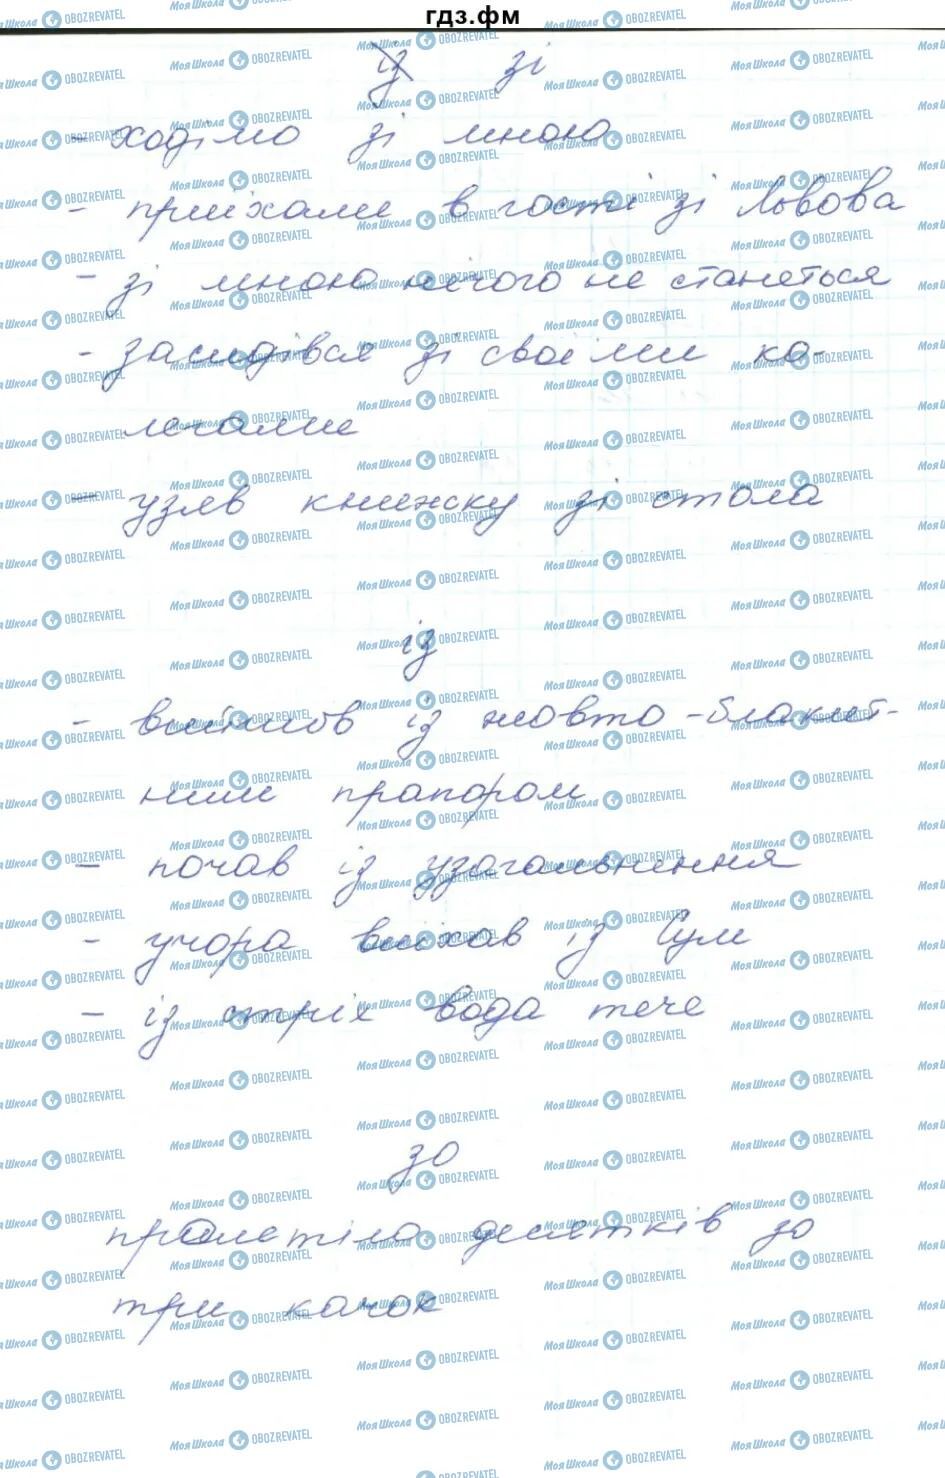 гдз.фм
із зі
- ходімо зі мною
- приїхали в гості зі Львова
- зі мною нічого не станеться
- засидівся зі своїми ко-
легами
- узяв книжку зі стола
із
- вийшов із жовто-блакит-
ним прапором
- почав із узагальнення
- учора виїхав із Сум
- із стріх вода тече
зо
пролетіло десятків зо
три качок
МояШкола OBOZREVATEL